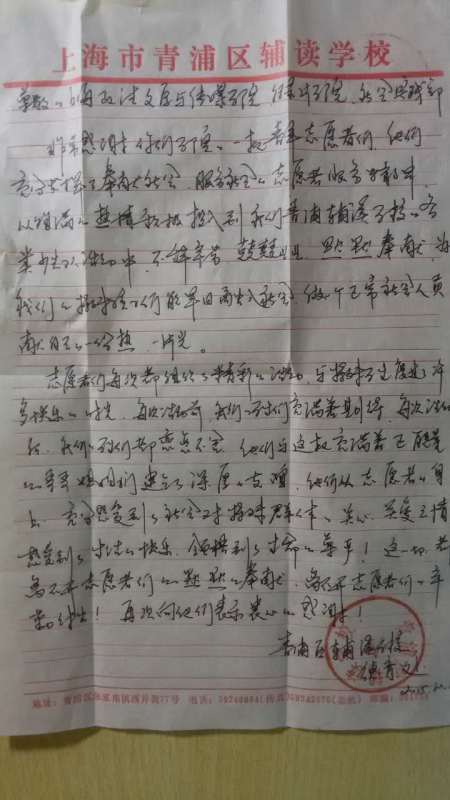 上海市青浦区辅读学校
尊敬的上海政法文学与传媒学院
非常感谢你们学院的一批青年志愿者们,他们
充分发扬了奉献社会、服务社会的志愿者服务精神,
以饱满的热情积极投入到我们青浦辅读学校的各
类活动中,不辞辛苦,兢兢业业,默默奉献,为
我们的孩子们能早日融入社会,做个正常社会人员
献自己的一份热,一份光。
志愿者们每次都组织了精彩的活动,与孩子们度过许
多快乐的时光,每次活动前,我们的孩子们充满着期待,每次活动
后,我们的孩子们都恋恋不舍,他们与这群充满着正能量
的哥哥姐姐们建立了深厚的友谊,他们从志愿者的身
上,充分感受到了社会对孩子群体的关心、关爱之情
感受到了生活的快乐,领悟到了生命的尊严!这一切,都
离不开志愿者们的默默的奉献,离不开志愿者们的辛
勤付出!再次向他们表示衷心的感谢!
青浦区辅读学校
2015.
地址:青浦区 77号 电话: 传真 邮编: